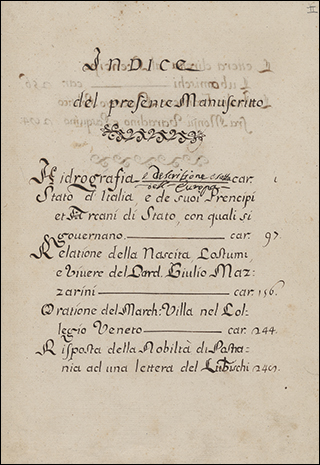 II
Indice
del presente Manuscritto
Hidrografia, e descrittione dello stato dell'Europa car. 1
Stato d'Italia, e de suoi Prencipi
et Arcani di Stato, con quali si
governano. car. 97.
Relatione della Nascita Costumi,
e Vivere del Card. Giulio Maz:
zarini car. 156.
Oratione del March: Villa nel Col:
legio Veneto car. 244.
Risposta della Nobiltà di Posna:
nia ad una lettera del Lubischi 249.